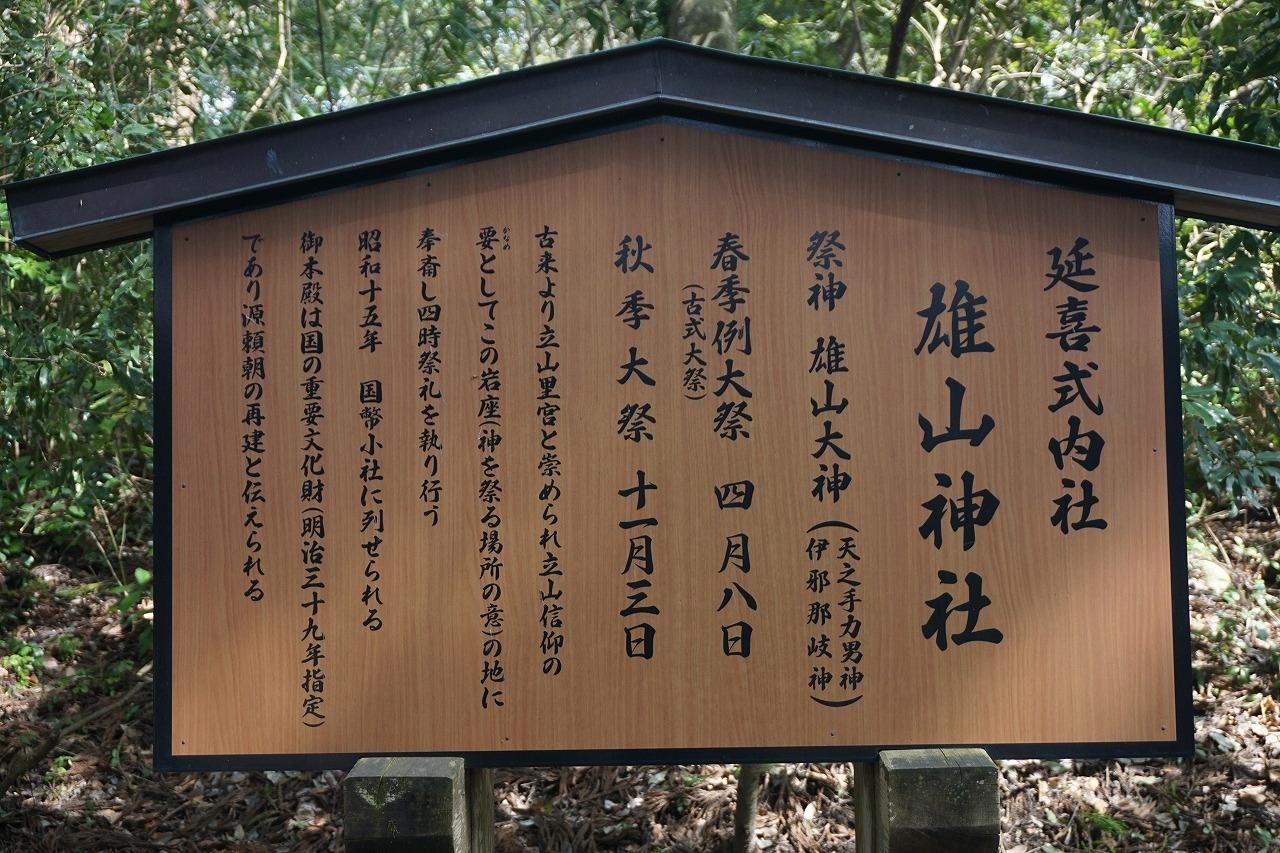 延喜式内社
雄山神社
祭神 雄山大神(天之手力男神
伊邪那岐神)
春季例大祭 四月八日
(古式大祭)
秋季大祭 十一月三日
古来より立山里宮と崇められ立山信仰の
要としてこの岩座(神を祭る場所の意)の地に
かなめ
奉斎し四時祭礼を執り行う
昭和十五年 国幣小社に列せられる
御本殿は国の重要文化財(明治三十九年指定)
であり源頼朝の再建と伝えられる